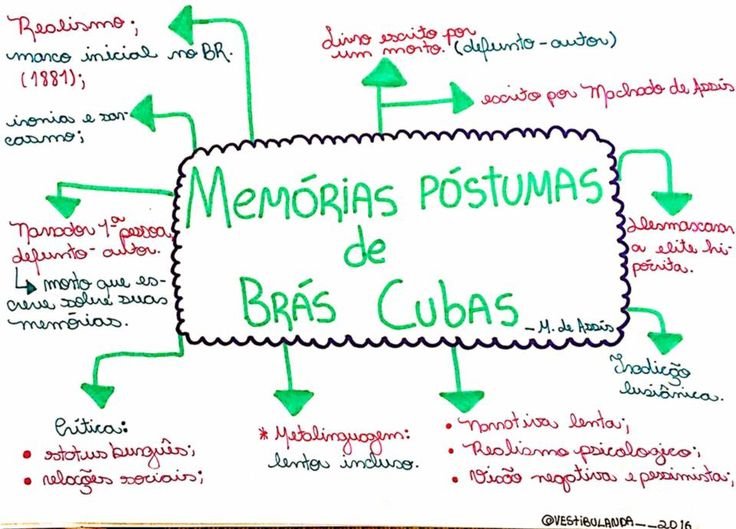 Realismo;
marco inicial no BR.
(1881);
ironia e sar-
casmo;
Livro escrito por
um morto. (defunto-autor)
escrito por Machado de Assis
MEMÓRIAS PÓSTUMAS
de
BRÁS CUBAS
- M. de Assis
Narrador 1ª pessoa
defunto-autor.
morto que es-
creve sobre suas
memórias.
Desmascarar
a elite hi-
pócrita.
Tradição
lusiânica.
Crítica:
• status burguês;
• relações sociais;
* Metalinguagem:
leitor incluso.
• Narrativa lenta;
• Realismo psicologico;
• Visão negativa e pessimista;
@VESTIBULANDA__2016